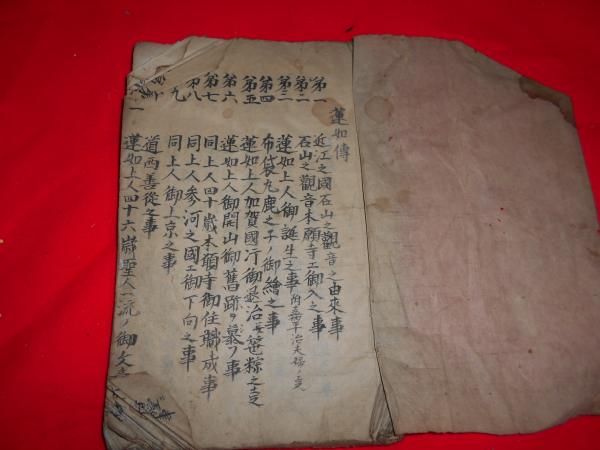 蓮如傳
第一 近江之國石山之觀音之由來事
第二 石山之觀音本願寺エ御入之事
第三 蓮如上人御誕生之事
第四 布袋丸鹿之子ノ御繪之事
第五 蓮如上人加賀國行御退治
第六 蓮如上人御開山御舊跡ヲ慕フ事
第七 同上人四十歳本願寺御住職成事
第八 同上人参河之國エ御下向之事
九 同上人御上京之事
道西善從之事
一 蓮如上人四十六歳聖人一流ノ御文